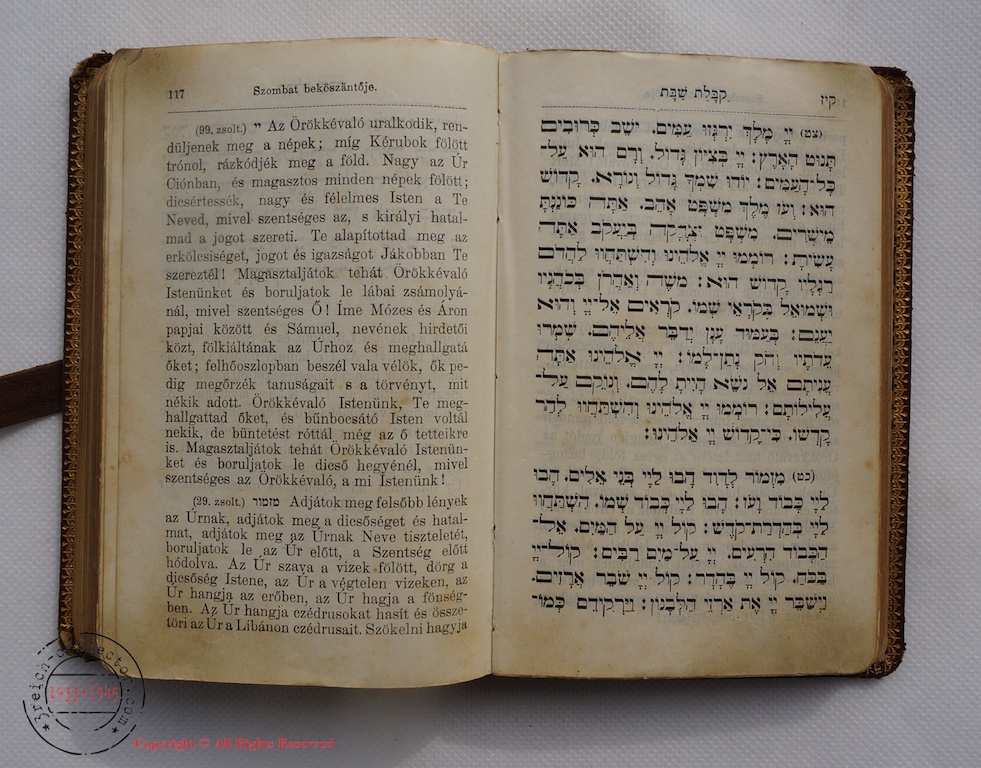 117
Szombat beköszöntője.
(99. zsolt.) יי Az Örökkévaló uralkodik, ren-
düljenek meg a népek; míg Kérubok fölött
trónol, rázkódjék meg a föld. Nagy az Úr
Ciónban, és magasztos minden népek fölött;
dicsértessék, nagy és félelmes Isten a Te
Neved, mivel szentséges az, s királyi hatal-
mad a jogot szereti. Te alapítottad meg az
erkölcsiséget, jogot és igazságot Jákobban Te
szereztél! Magasztaljátok tehát Örökkévaló
Istenünket és boruljatok le lábai zsámolyá-
nál, mivel szentséges Ő! Íme Mózes és Áron
papjai között és Sámuel, nevének hirdetői
közt, fölkiáltának az Úrhoz és meghallgatá
őket; felhőoszlopban beszél vala vélök, ők pe-
dig megőrzék tanuságait s a törvényt, mit
nékik adott. Örökkévaló Istenünk, Te meg-
hallgattad őket, és bűnbocsátó Isten voltál
nekik, de büntetést róttál még az ő tetteikre
is. Magasztaljátok tehát Örökkévaló Istenün-
ket és boruljatok le dicső hegyénél, mivel
szentséges az Örökkévaló, a mi Istenünk!
(29. zsolt.) מזמור Adjátok meg felsőbb lények
az Úrnak, adjátok meg a dicsőséget és hatal-
mat, adjátok meg az Úrnak Neve tiszteletét,
boruljatok le az Úr előtt, a Szentség előtt
hódolva. Az Úr szava a vizek fölött, dörg a
dicsőség Istene, az Úr a végtelen vizeken, az
Úr hangja az erőben, az Úr hagja a fönség-
ben. Az Úr hangja czédrusokat hasít és össze-
töri az Úr a Libánon czédrusait. Szökelni hagyja
קַבָּלַת שַׁבָּת
קיז
(צט) יְיָ מָלָךְ יִרְגְּזוּ עַמִּים. ישֵׁב כְּרוּבִים
תָּנוּט הָאָרֶץ: יְיָ בְּצִיּוֹן גָּדוֹל. וְרָם הוּא עַל־
כָּל־הָעַמִּים: יוֹדוּ שִׁמְךָ גָּדוֹל וְנוֹרָא. קָדוֹשׁ
הוּא: וְעֹז מֶלֶךְ מִשְׁפָּט אָהֵב. אַתָּה כּוֹנַנְתָּ
מֵישָׁרִים. מִשְׁפָּט וּצְדָקָה בְּיַעֲקֹב אַתָּה
עָשִׂיתָ: רוֹמְמוּ יְיָ אֱלֹהֵינוּ וְהִשְׁתַּחֲווּ לַהֲדֹם
רַגְלָיו קָדוֹשׁ הוּא: מֹשֶׁה וְאַהֲרֹן בְּכֹהֲנָיו
וּשְׁמוּאֵל בְּקֹרְאֵי שְׁמוֹ. קֹרְאִים אֶל־יְיָ וְהוּא
יַעֲנֵם: בְּעַמּוּד עָנָן יְדַבֵּר אֲלֵיהֶם. שָׁמְרוּ
עֵדֹתָיו וְחֹק נָתַן־לָמוֹ: יְיָ אֱלֹהֵינוּ אַתָּה
עֲנִיתָם אֵל נֹשֵׂא הָיִיתָ לָהֶם. וְנוֹקֵם עַל־
עֲלִילוֹתָם: רוֹמְמוּ יְיָ אֱלֹהֵינוּ וְהִשְׁתַּחֲווּ לְהַר
קָדְשׁוֹ. כִּי־קָדוֹשׁ יְיָ אֱלֹהֵינוּ:
(כט) מִזְמוֹר לְדָוִד הָבוּ לַיְיָ בְּנֵי אֵלִים. הָבוּ
לַיְיָ כָּבוֹד וָעֹז: הָבוּ לַיְיָ כְּבוֹד שְׁמוֹ. הִשְׁתַּחֲווּ
לַיְיָ בְּהַדְרַת־קֹדֶשׁ: קוֹל יְיָ עַל הַמָּיִם. אֵל־
הַכָּבוֹד הִרְעִים. יְיָ עַל־מַיִם רַבִּים: קוֹל־יְיָ
בַּכֹּחַ. קוֹל יְיָ בֶּהָדָר: קוֹל יְיָ שֹׁבֵר אֲרָזִים.
וַיְשַׁבֵּר יְיָ אֶת אַרְזֵי הַלְּבָנוֹן: וַיַּרְקִידֵם כְּמוֹ־
3reich-collector.com
1933-1945
Copyright © All Rights Reserved